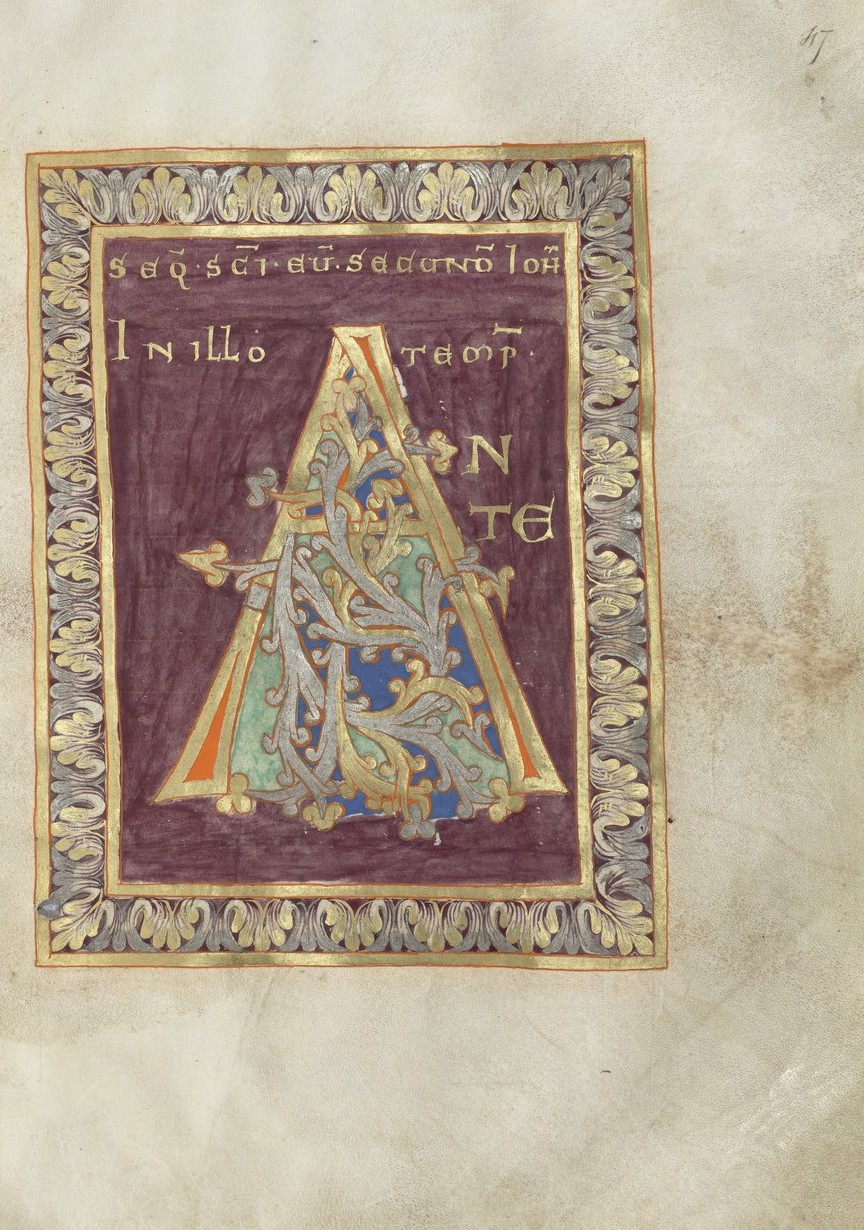 47
SEQ̄·SC̄I·EŪ·SECUNDŌ IOH̄
IN ILLO TEMP̄·
A
N
TE